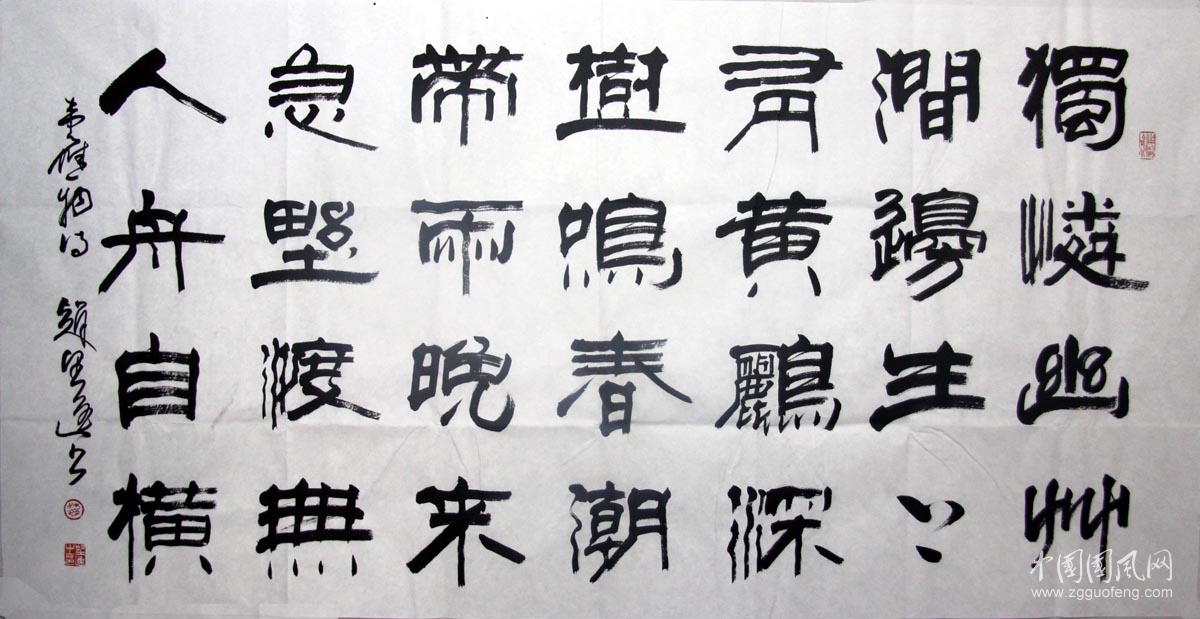 獨憐幽艸
澗邊生上
有黃鸝深
樹鳴春潮
帶雨晚来
急野渡無
人舟自橫
韋應物詩 趙望進书
中国国风网
www.zgguofeng.com